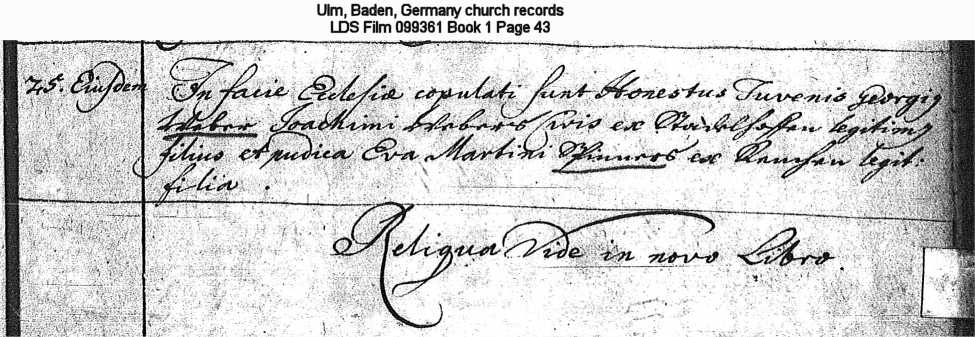 Ulm, Baden, Germany church records
LDS Film 099361 Book 1 Page 43
25. Eiusdem In facie Ecclesiæ copulati sunt Honestus Iuvenis Georgig
Weber Joachimi Webers civis ex Stadelhoffen legitimg
filius et pudica Eva Martini Spinners ex Renchen legit:
filia.
Reliqua Vide in novo Libro.